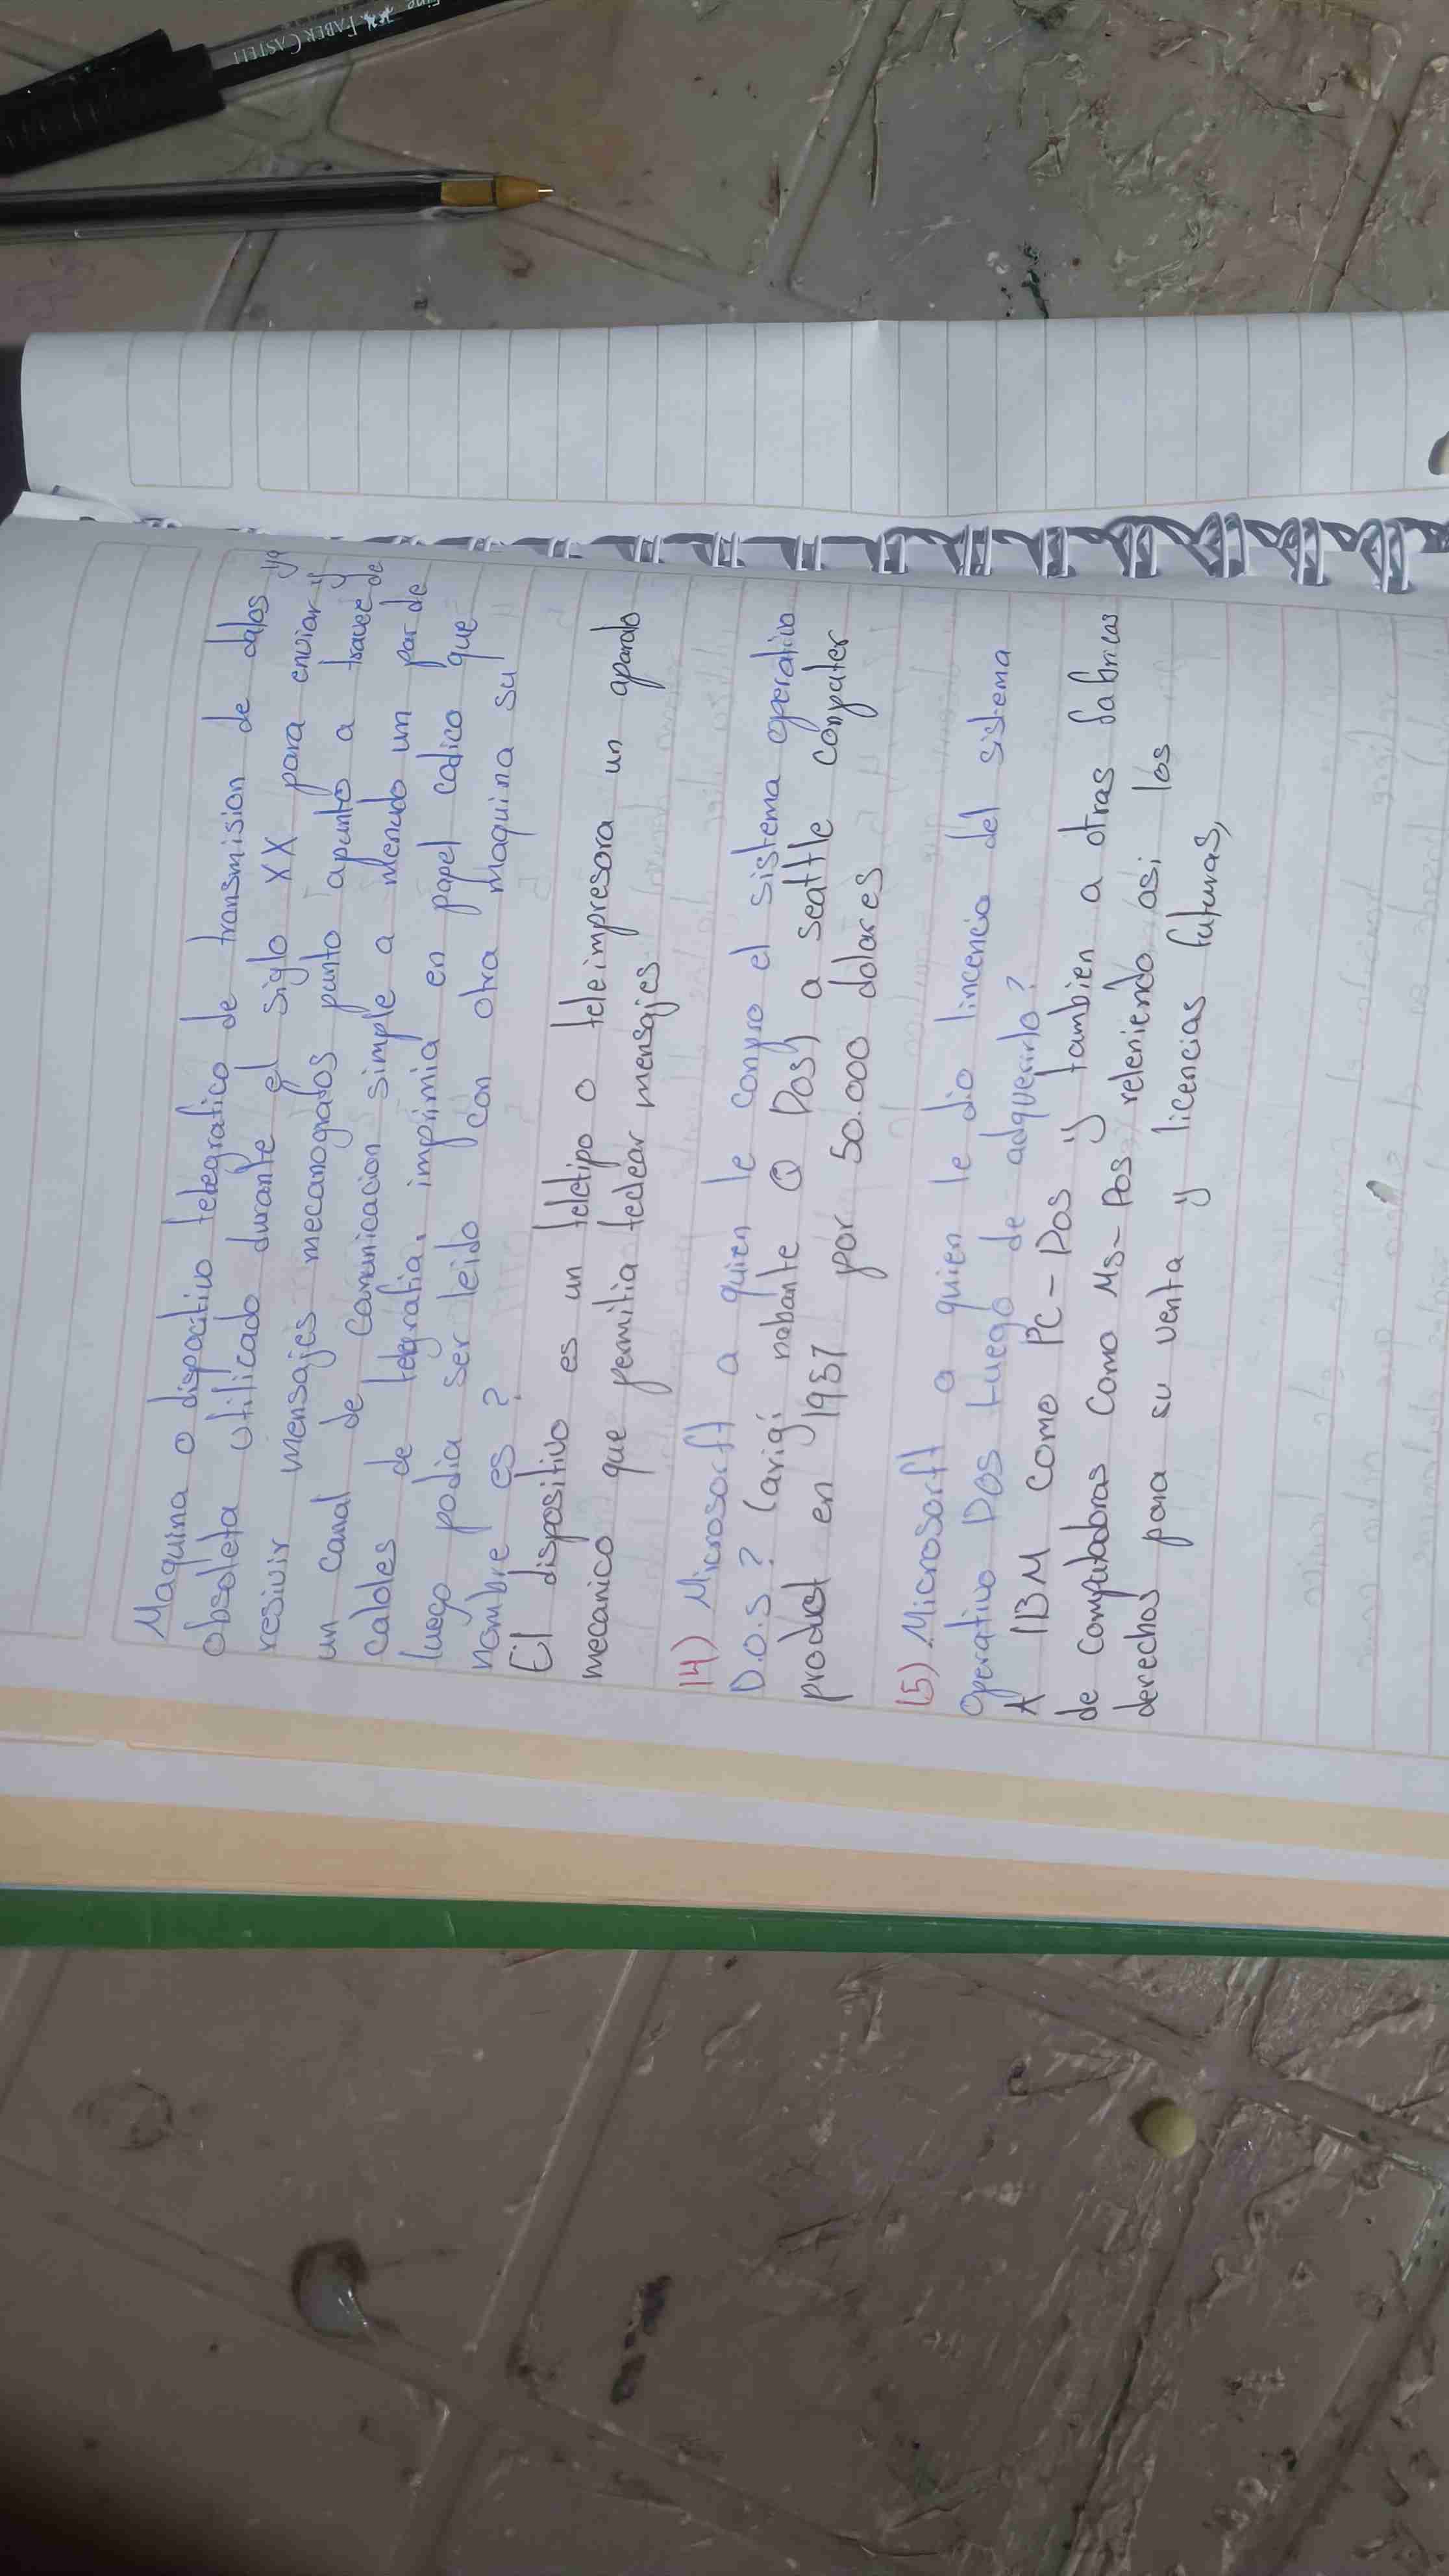 Maquina o dispocitivo telegrafico de transmision de datos ya
obsoleta utilicado durante el siglo XX para enviar y
resivir mensajes mecanografos punto apunto a travez de
un canal de comunicacion simple a menudo un par de
cables de telegrafia, imprimia en papel calico que
luego podia ser leido con otra maquina su
nombre es ?
El dispositivo es un teletipo o teleimpresora un aparato
mecanico que permitia teclear mensajes
14) Microsorft a quien le conpro el sistema operativo
D.O.S ? (arigi nabante Q Dos) a seattle conputer
product en 1981 por 50.000 dolares
15) Microsorft a quien le dio lincencia del sistema
operativo DOS luego de adquerirlo?
A IBM como PC-Dos y tambien a otras fabricas
de computadoras como Ms-Dos, releniendo asi los
derechos para su venta y licencias futuras,
FABER CASTELL